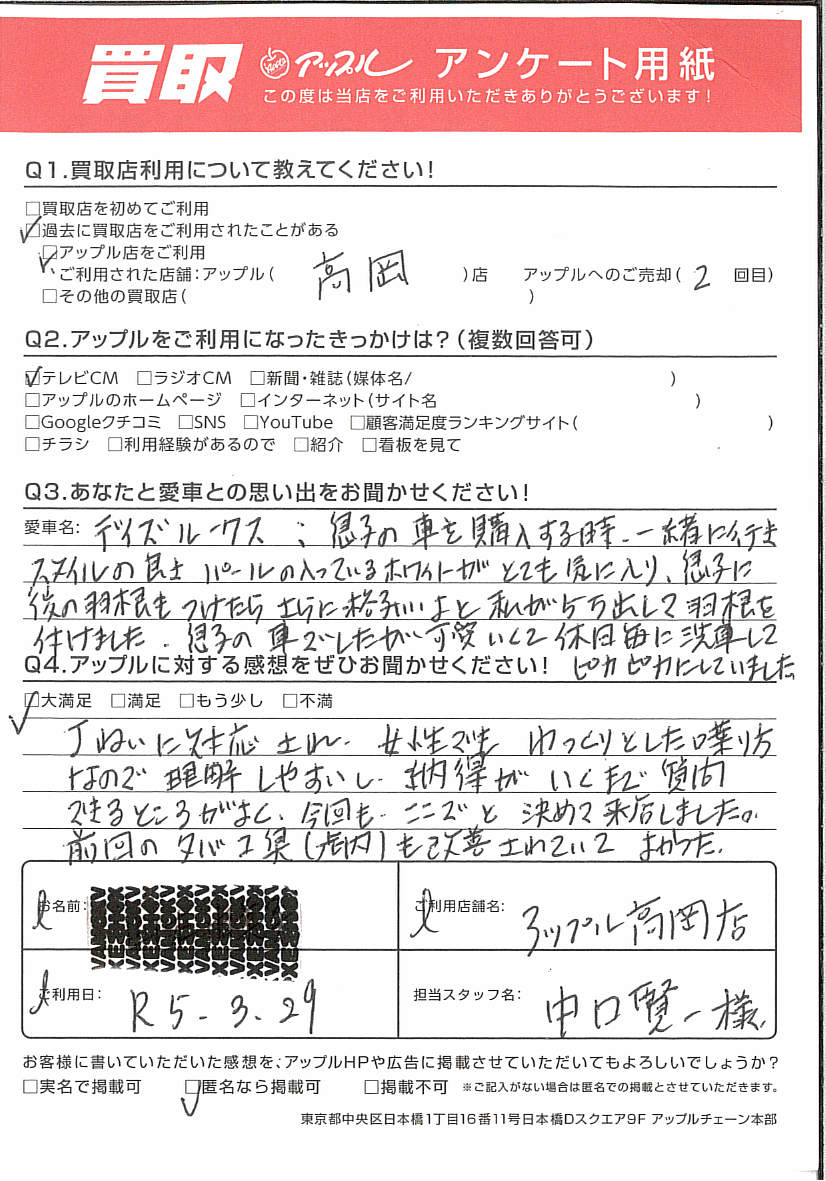 買取 アップル アンケート用紙
この度は当店をご利用いただきありがとうございます!
Q1.買取店利用について教えてください!
□買取店を初めてご利用
□過去に買取店をご利用されたことがある
□アップル店をご利用
ご利用された店舗:アップル( 高岡 )店 アップルへのご売却( 2 回目)
□その他の買取店( )
Q2.アップルをご利用になったきっかけは?(複数回答可)
□テレビCM □ラジオCM □新聞・雑誌(媒体名/ )
□アップルのホームページ □インターネット(サイト名 )
□Googleクチコミ □SNS □YouTube □顧客満足度ランキングサイト( )
□チラシ □利用経験があるので □紹介 □看板を見て
Q3.あなたと愛車との思い出をお聞かせください!
愛車名: デイズルークス : 息子の車を購入する時、一緒に行き
スタイルの良さ パールの入っているホワイトがとても気に入り、息子に
後の羽根もつけたらさらに格好いいよと私がケチ出して羽根を
付けました。息子の車でしたが可愛いくて休日毎に洗車して
ピカピカにしていました
Q4.アップルに対する感想をぜひお聞かせください!
□大満足 □満足 □もう少し □不満
丁ねいに対応され、女性でも ゆっくりとした喋り方
なので 理解しやすいし、納得がいくまで 質問
できるところがよく、今回も、ここでと 決めて来店しました。
前回のタバコ臭(店内)も改善されていて よかった。
お名前:
ご利用店舗名: アップル高岡店
ご利用日: R5-3.29
担当スタッフ名: 中口賢一様
お客様に書いていただいた感想を、アップルHPや広告に掲載させていただいてもよろしいでしょうか?
□実名で掲載可 □匿名なら掲載可 □掲載不可 ※ご記入がない場合は匿名での掲載とさせていただきます。
東京都中央区日本橋1丁目16番11号日本橋Dスクエア9F アップルチェーン本部